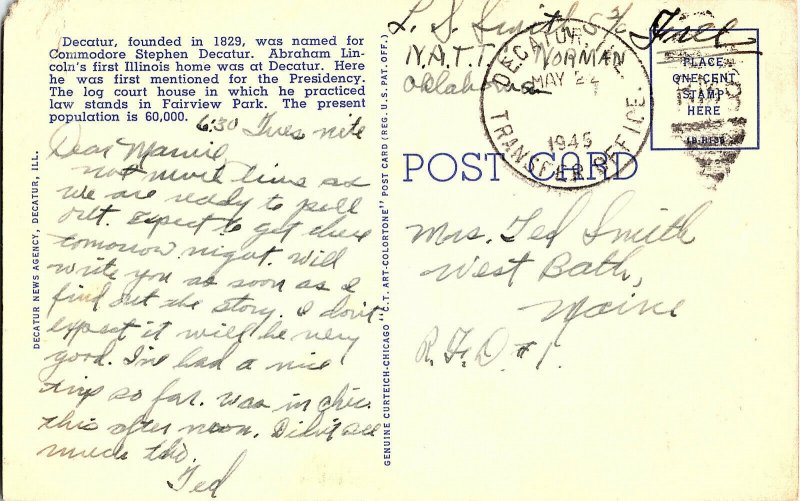 Decatur, founded in 1829, was named for
Commodore Stephen Decatur. Abraham Lin-
coln's first Illinois home was at Decatur. Here
he was first mentioned for the Presidency.
The log court house in which he practiced
law stands in Fairview Park. The present
population is 60,000.
6:30 Tues nite
Dear
not much time as
we are ready to pull
out. Expect to get there
tomorrow night. Will
write you as soon as I
find out the story. I don't
expect it will be very
good. I've had a nice
trip so far. Was in Chic.
this after noon. Didn't see
much tho.
Ted
DECATUR NEWS AGENCY, DECATUR, ILL.
GENUINE CURTEICH-CHICAGO "C.T. ART-COLORTONE" POST CARD (REG. U.S. PAT. OFF.)
L. S. Smith S 2/c
N.A.T.T. NORMAN
Oklahoma
Free
DECATUR, ILL.
MAY 22
1945
TRANSFER OFFICE.
PLACE
ONE CENT
STAMP
HERE
POST CARD
Mrs. Ted Smith
West Bath,
Maine
R.F.D. #1.